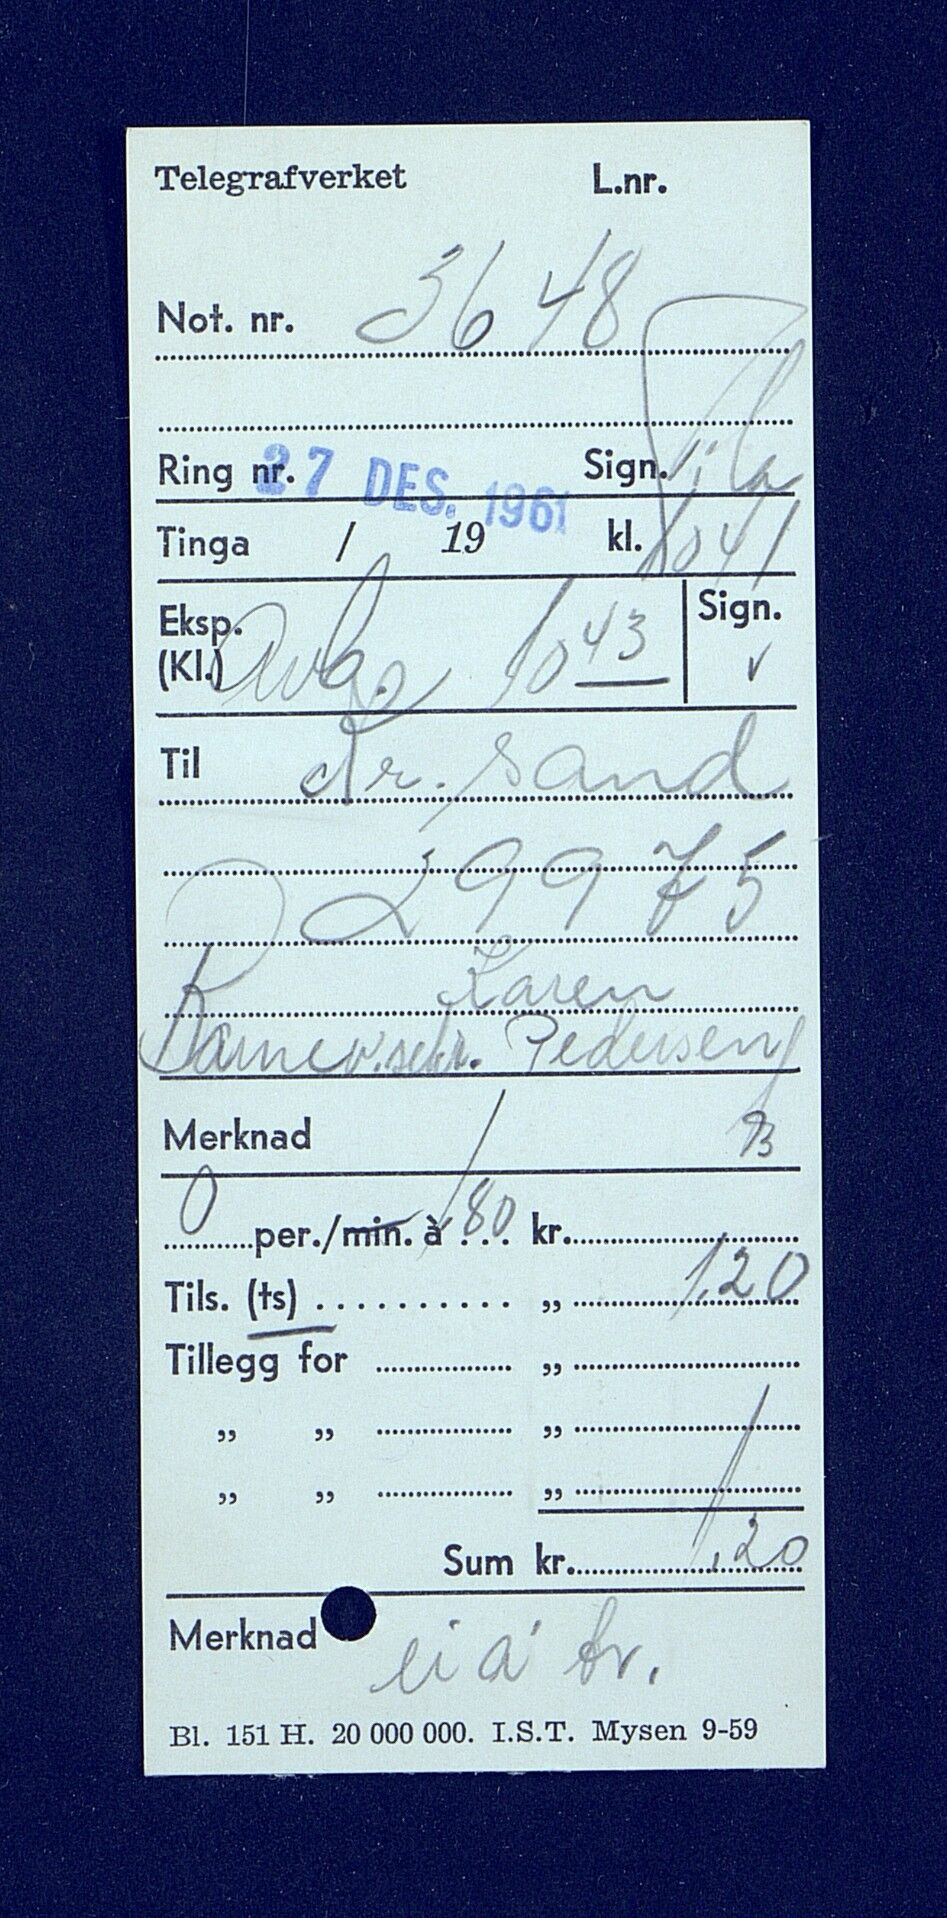 Telegrafverket L.nr.
Not. nr. 3648
Ring nr. 27 DES. 1961 Sign.
Tinga / 19 kl. 1041
Eksp. (Kl.) 1043 Sign. v
Til Kr.sand
29975
Karen
Pedersen
Merknad
0 per./min. à 180 kr.
Tils. (ts) .......... „ 1,20
Tillegg for „
„ „ „
„ „ „
Sum kr. 1,20
Merknad
Bl. 151 H. 20 000 000. I.S.T. Mysen 9-59